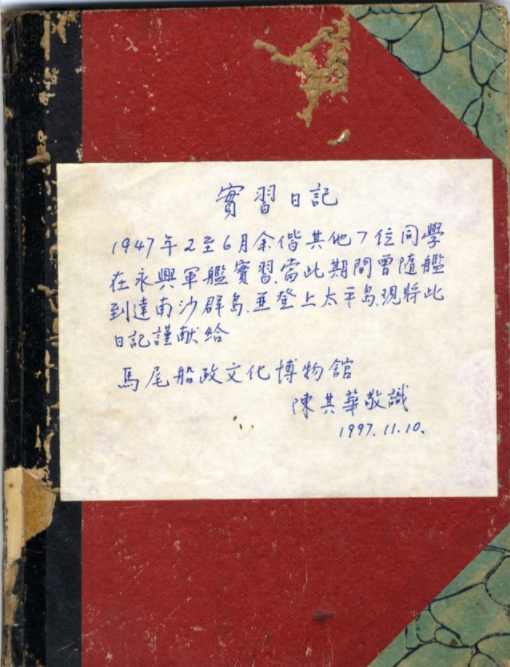 實習日記
1947年2至6月余偕其他7位同學
在永興軍艦實習.當此期間曾隨艦
到達南沙群島.並登上太平島.現將此
日記謹献給
馬尾船政文化博物館
陳其華敬識
1997.11.10.